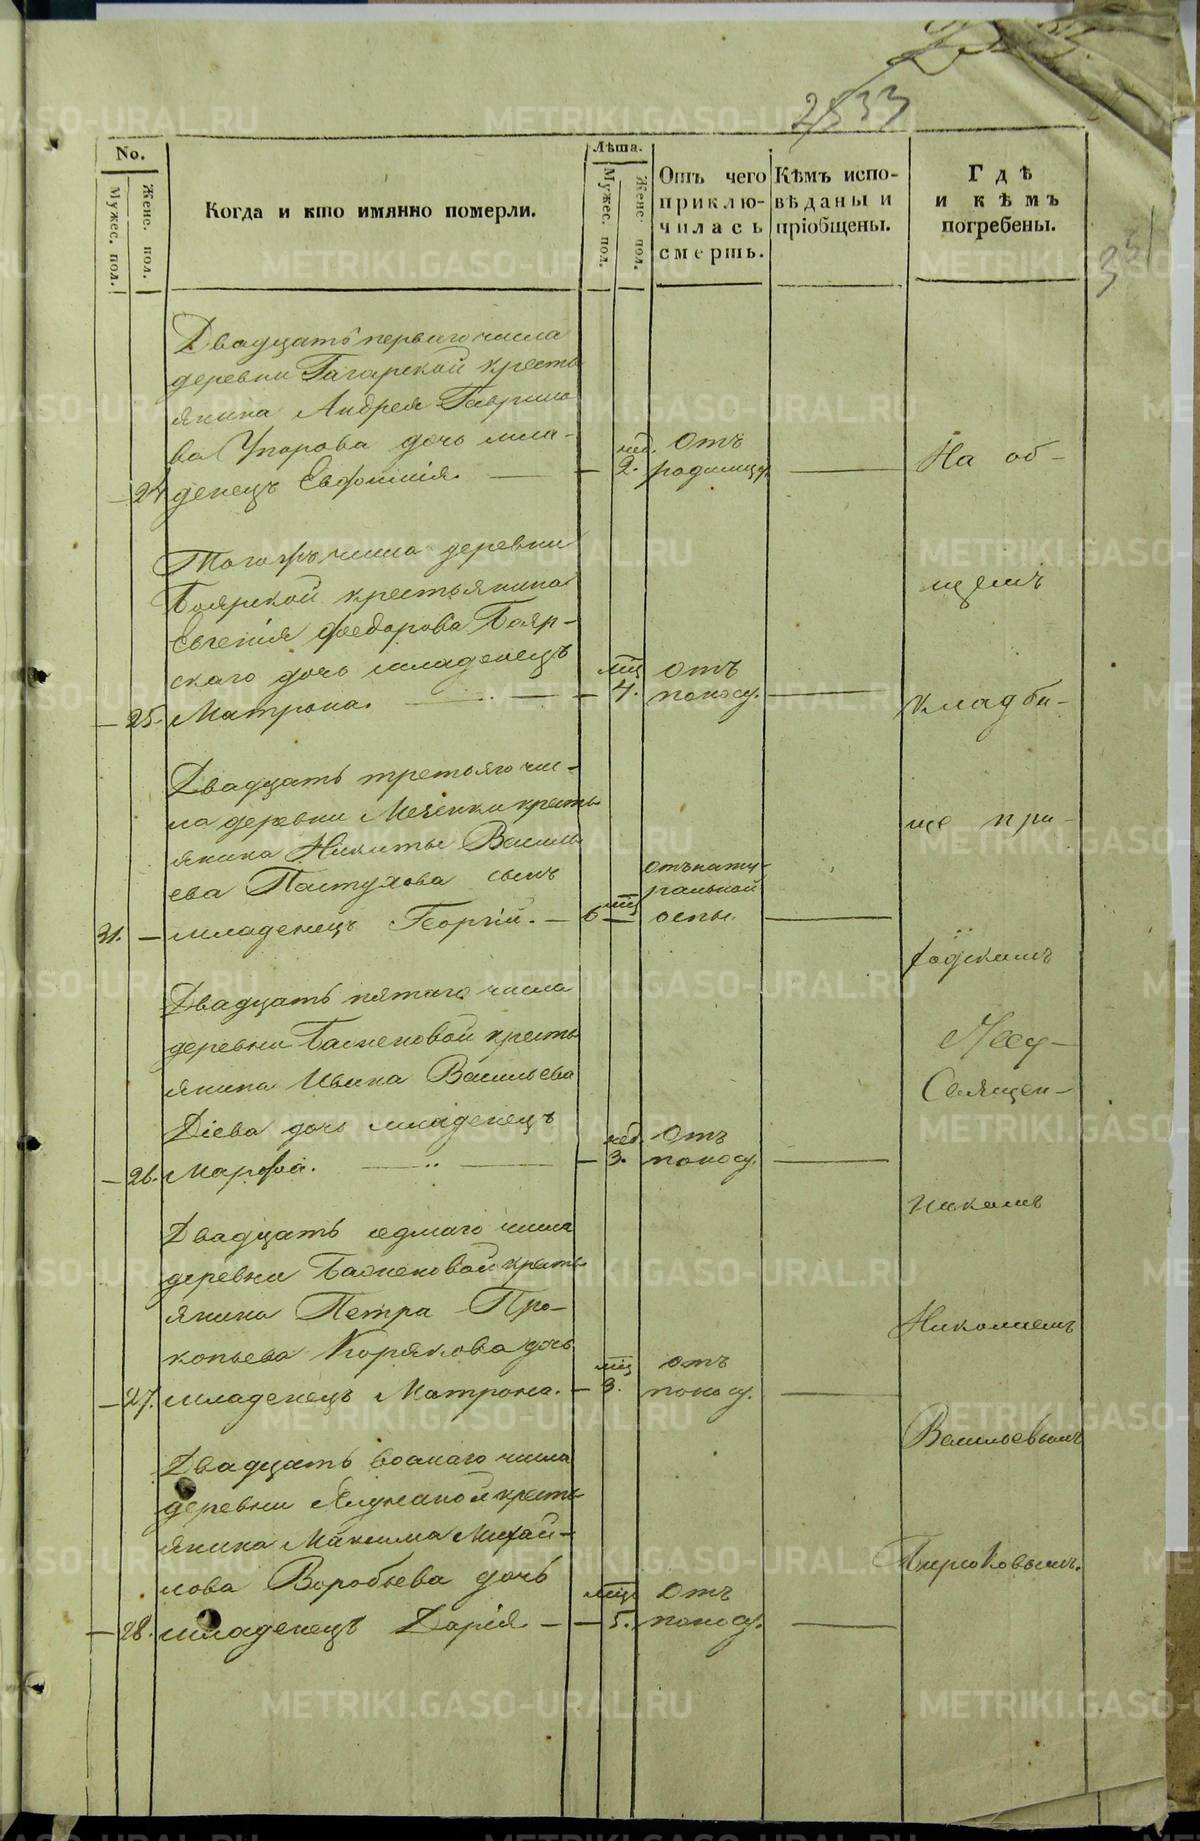 25 33
33
No.
Мужес. пол.
Женс. пол.
Когда и кто имянно померли.
Лѣта.
Мужес. пол.
Женс. пол.
Отъ чего
приклю-
чилась
смерть.
Кѣмъ испо-
вѣданы и
пріобщены.
Гдѣ
и кѣмъ
погребены.
Двадцать перваго числа
деревни Гагарской кресть
янина Андрея Гаврило
ва Упорова дочь мла-
— 24 денецъ Евфимія. — — нед. 2. отъ родимцу. —
Тогожъ числа деревни
Боярской крестьянина
Евгенія Федорова Бояр-
скаго дочь младенецъ
— 25. Матрона. — — мц 4. отъ поносу. —
Двадцать третьяго чис-
ла деревни Мезенки кресть
янина Никиты Василь
ева Пастухова сынъ
31. — младенецъ Георгій. — 6 мц — отъ нату-
ральной
оспы. —
Двадцать пятаго числа
деревни Баженовой кресть
янина Ивана Васильева
Діева дочь младенецъ
— 26. Марфа. — — нед. 3. отъ поносу. —
Двадцать седмаго числа
деревни Баженовой кресть
янина Петра Про-
копьева Корякова дочь
— 27. младенецъ Матрона. — мц 3. отъ поносу. —
Двадцать восмаго числа
деревни кресть
янина Максима Михай-
лова Воробьева дочь
— 28. младенецъ Дарія — — мц 5. отъ поносу. —
На об-
щемъ
кладби-
ще при-
ходскимъ
Священ-
никомъ
Николаемъ
Васильевымъ
METRIKI.GASO-URAL.RU